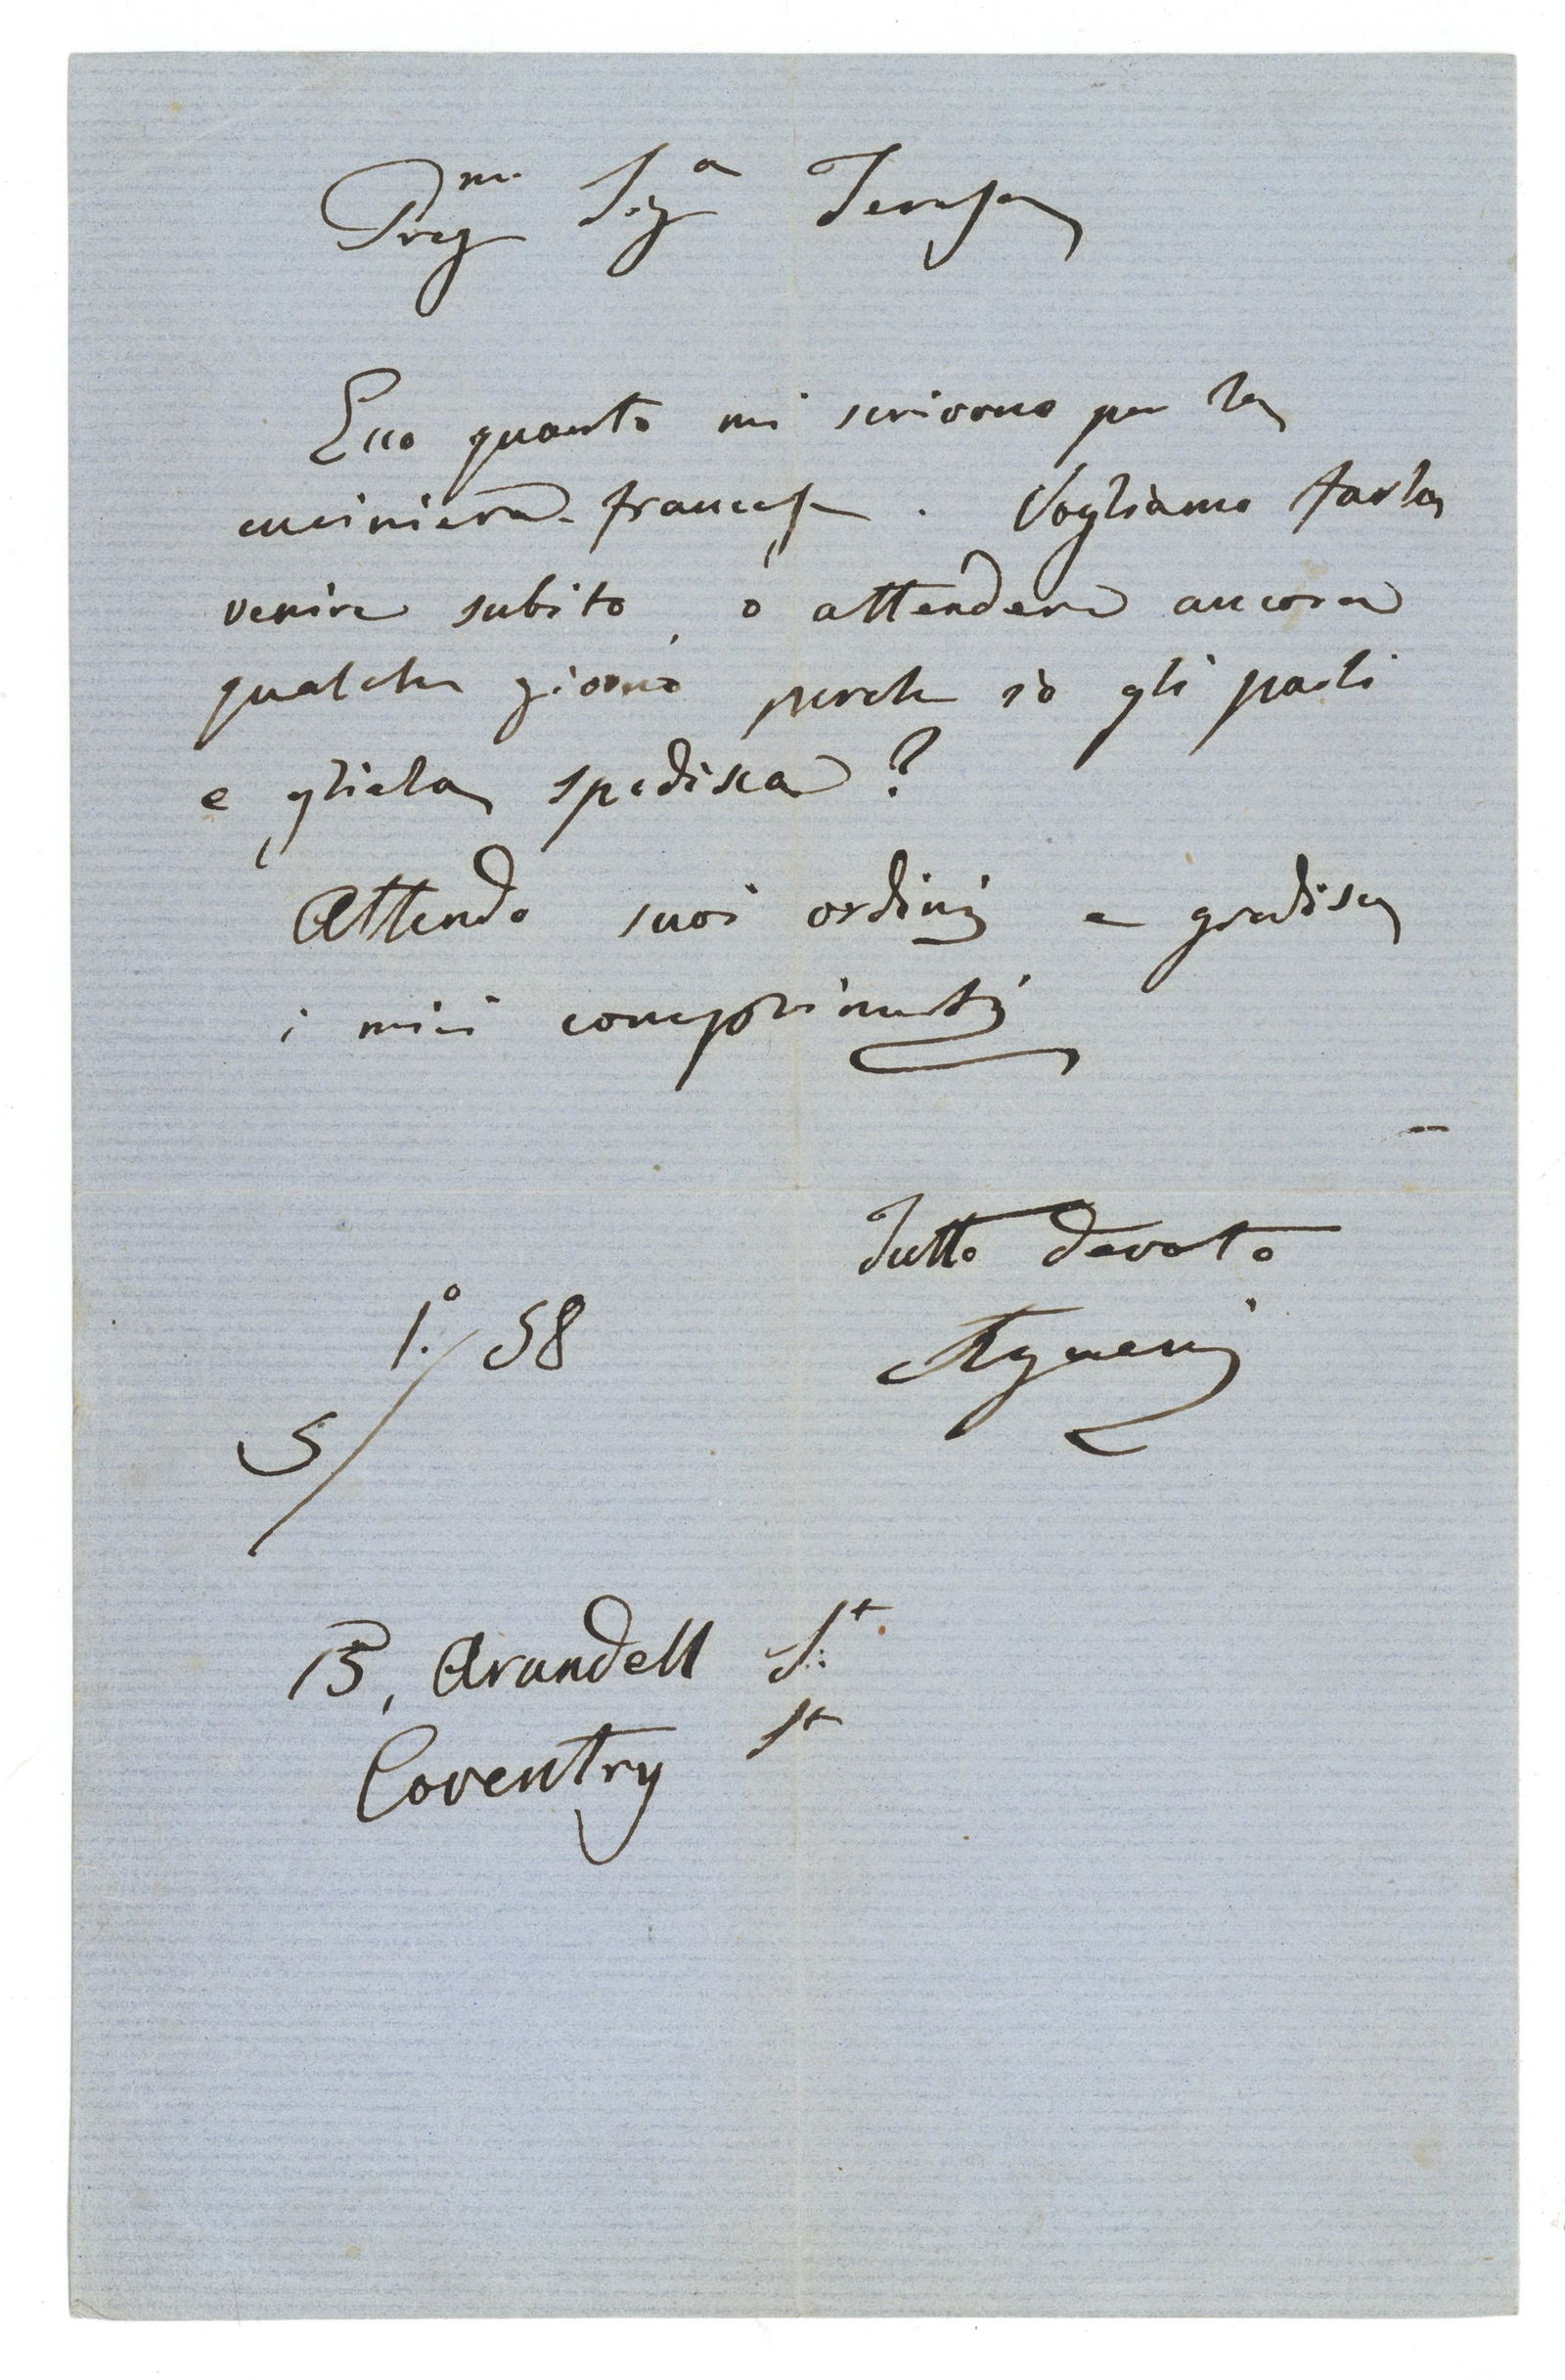 Preg.ma Sig.a Teresa
Ecco quanto mi scrivono per la
cuciniera francese. Vogliamo farla
venire subito, o attendere ancora
qualche giorno perche io gli parli
e gliela spedisca?
Attendo suoi ordini e gradisca
i miei complimenti
Tutto devoto
Agneni
1.° 58
5
15, Arundell St.
Coventry St